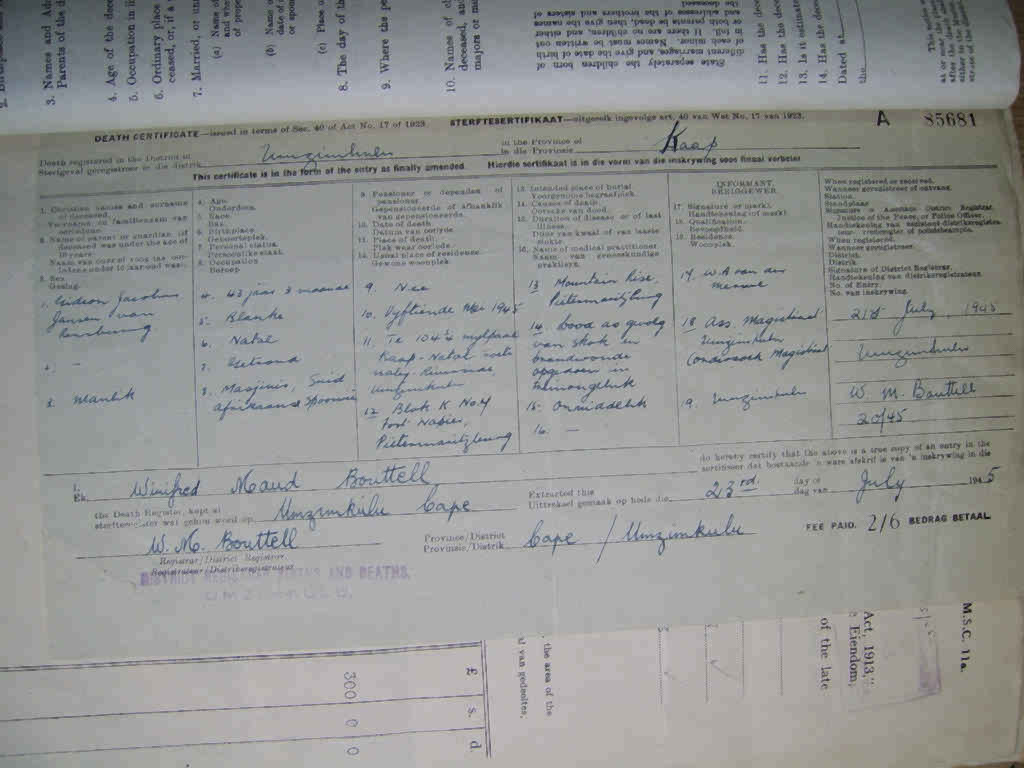 3. Names and Add
Parents of the d
4. Age of the dece
5. Occupation in li
6. Ordinary place
ceased, or, if a
7. Married, or un
(a) Name of
(b) Name o
(c) Place o
8. The day of the
9. Where the pe
10. Names of ch
deceased, and
majors or m
State separately the children born of
different marriages, and give the date of birth
of each minor. Names must be written out
in full. If there are no children, and either
or both parents be dead, then give the names
and addresses of the brothers and sisters of
the deceased
11. Has the dece
12. Has the dece
13. Is it estimate
14. Has the dece
Dated at
the
DEATH CERTIFICATE—issued in terms of Sec. 40 of Act No. 17 of 1923. STERFTESERTIFIKAAT—uitgereik ingevolge art. 40 van Wet No. 17 van 1923.
A 85681
Death registered in the District of
Sterfgeval geregistreer in die distrik
Umzimkulu
in the Province of
in die Provinsie
Kaap
This certificate is in the form of the entry as finally amended. Hierdie sertifikaat is in die vorm van die inskrywing soos finaal verbeter.
1. Christian names and surname
of deceased.
Voorname en familienaam van
oorledene.
2. Name of parent or guardian if
deceased was under the age of
10 years.
3. Sex.
Geslag.
1. Gideon Jacobus
Jansen van
Rensburg
2. –
3. Manlik
4. Age.
Ouderdom.
5. Race.
Ras.
6. Birthplace.
Geboorteplek.
7. Personal status.
Persoonlike staat.
8. Occupation
Beroep
4. 43 jaar 3 maande
5. Blanke
6. Natal
7. Getroud
8. Masjinis, Suid
Afrikaanse Spoorweë
9. Pensioner or dependan of
pensioner.
Gepensioneerde of afhanklik
van gepensioneerde.
10. Date of death.
Datum van oorlyde.
11. Place of death.
Plek waar oorlede.
12. Usual place of residence.
Gewone woonplek.
9. Nee
10. Vyftiende Mei 1945
11. Te 104½ mylpaal
Kaap-Natal
Umzimkulu
12. Blok K No.4
Fort Napier,
Pietermaritzburg
13. Intended place of burial
Voorgenome begraafplek.
14. Causes of death.
Oorsake van dood.
15. Duration of disease or of last
illness.
Duur van kwaal of van laaste
siekte.
16. Name of medical practitioner.
Naam van geneeskundige
praktisyn.
13 Mountain Rise,
Pietermaritzburg
14. Dood as gevolg
van skok en
brandwonde
opgedoen in
treinongeluk
15. Onmiddelik
16. –
INFORMANT
BERIGGEWER
17. Signature or mark.
Handtekening of merk.
18. Qualification.
Bevoegdheid.
19. Residence.
Woonplek.
17. W.A van der
Merwe
18 Ass. Magistraat
Umzimkulu
19. Umzimkulu
When registered or received.
Wanneer geregistreer of ontvang.
Station.
Standplaas
Signature of Assistant District Registrar,
Justice of the Peace, or Police Officer.
When registered.
Wanneer geregistreer.
District.
Distrik.
Signature of District Registrar.
Handtekening van distriksregistrateur.
No. of Entry.
No. van inskrywing.
21st July, 1945
Umzimkulu
W. M. Bouttell
20/45
I,
Ek,
Winifred Maud Bouttell
do hereby certify that the above is a true copy of an entry in the
sertifiseer dat bostaande 'n ware afskrif is van 'n inskrywing in die
the Death Register, kept at
sterfteregister wat gehou word op
Umzimkulu Cape
Extracted this
Uittreksel gemaak op hede die
23rd
day of
dag van
July
1945
W. M. Bouttell
Registrar/District Registrar.
Registrateur/Distriksregistrateur.
Province/District
Provinsie/Distrik
Cape / Umzimkulu
FEE PAID. 2/6 BEDRAG BETAAL
DISTRICT REGISTRAR BIRTHS AND DEATHS.
UMZIMKULU.
£ s. d.
300 0 0
the area of the
van gedeeltes,
Act, 1913,"
Eiendom,
of the late
M.S.C. 11a.